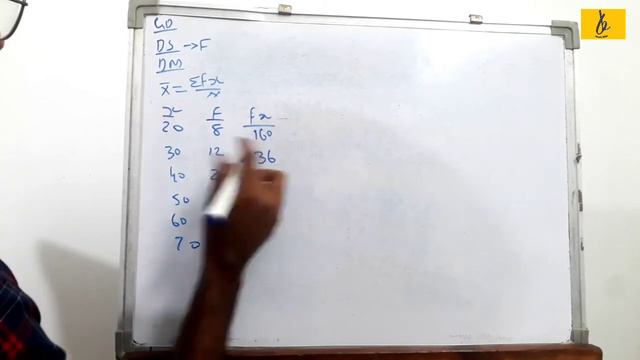 GD
DS → F
DM
x̄ = Σfx
x F fx
20 8 160
30 12 36
40 2
50
60
70